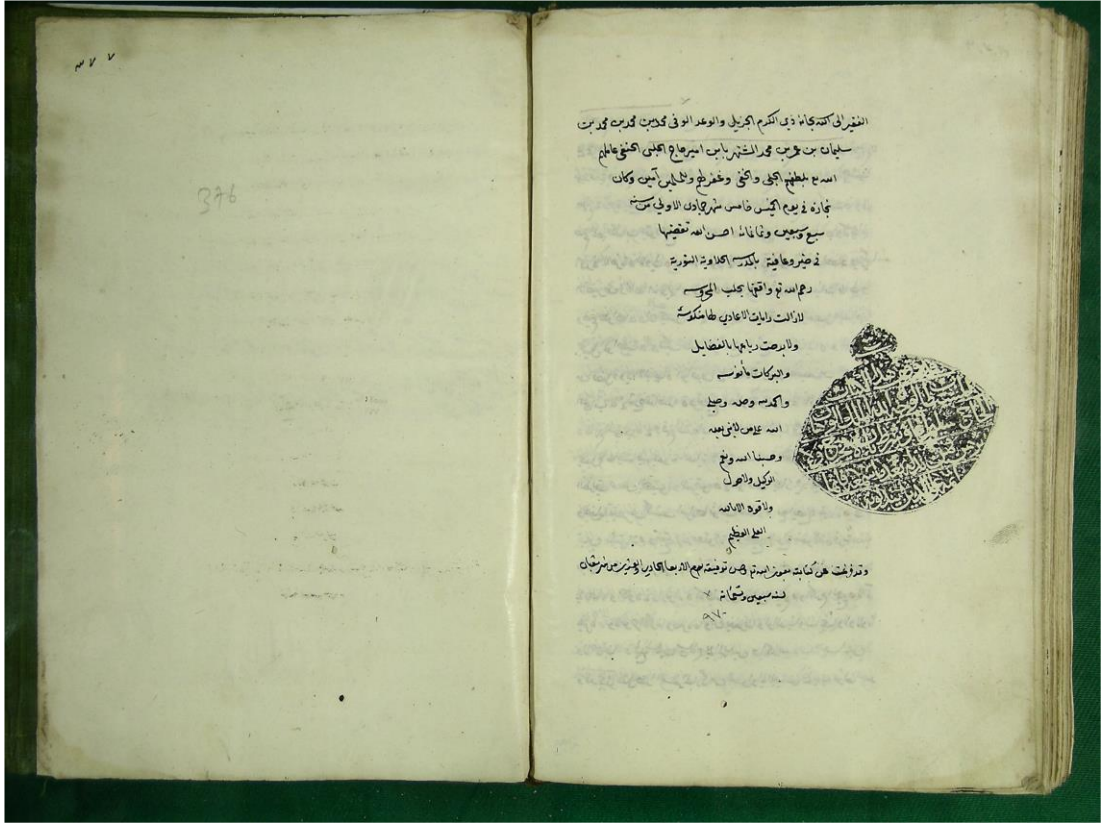 الفقير الى الله سبحانه ذي الكرم الجزيل والوعد الوفي محمد بن محمد بن محمد بن
سليمان بن عمر بن محمد الشهير بابن امير حاج الحلبي الحنفي عاملهم
الله تع بلطفه الجلي والخفي وغفر لهم وللمسلمين آمين وكان
نجازه في يوم الخميس خامس شهر جمادى الاولى من سنة
سبع وسبعين وثمانمائة احسن الله تقضيها
في خير وعافية بالمدرسه الحلاوية النورية
رحم الله تع واقفها بحلب المحروسه
لازالت رايات الاعادي لها منكوسة
ولا برحت رباعها بالفضايل
والبركات مأنوسه
والحمد لله وحده وصلى
الله على من لا نبي بعده
وحسبنا الله ونعم
الوكيل ولا حول
ولا قوة الا بالله
العلي العظيم
وقد فرغت من كتابته بعون الله تع وحسن توفيقه يوم الاربعا الحادي والعشرين من شعبان
لسنه سبعين وتسعمائة
٩٧٠
٣٧٧
376